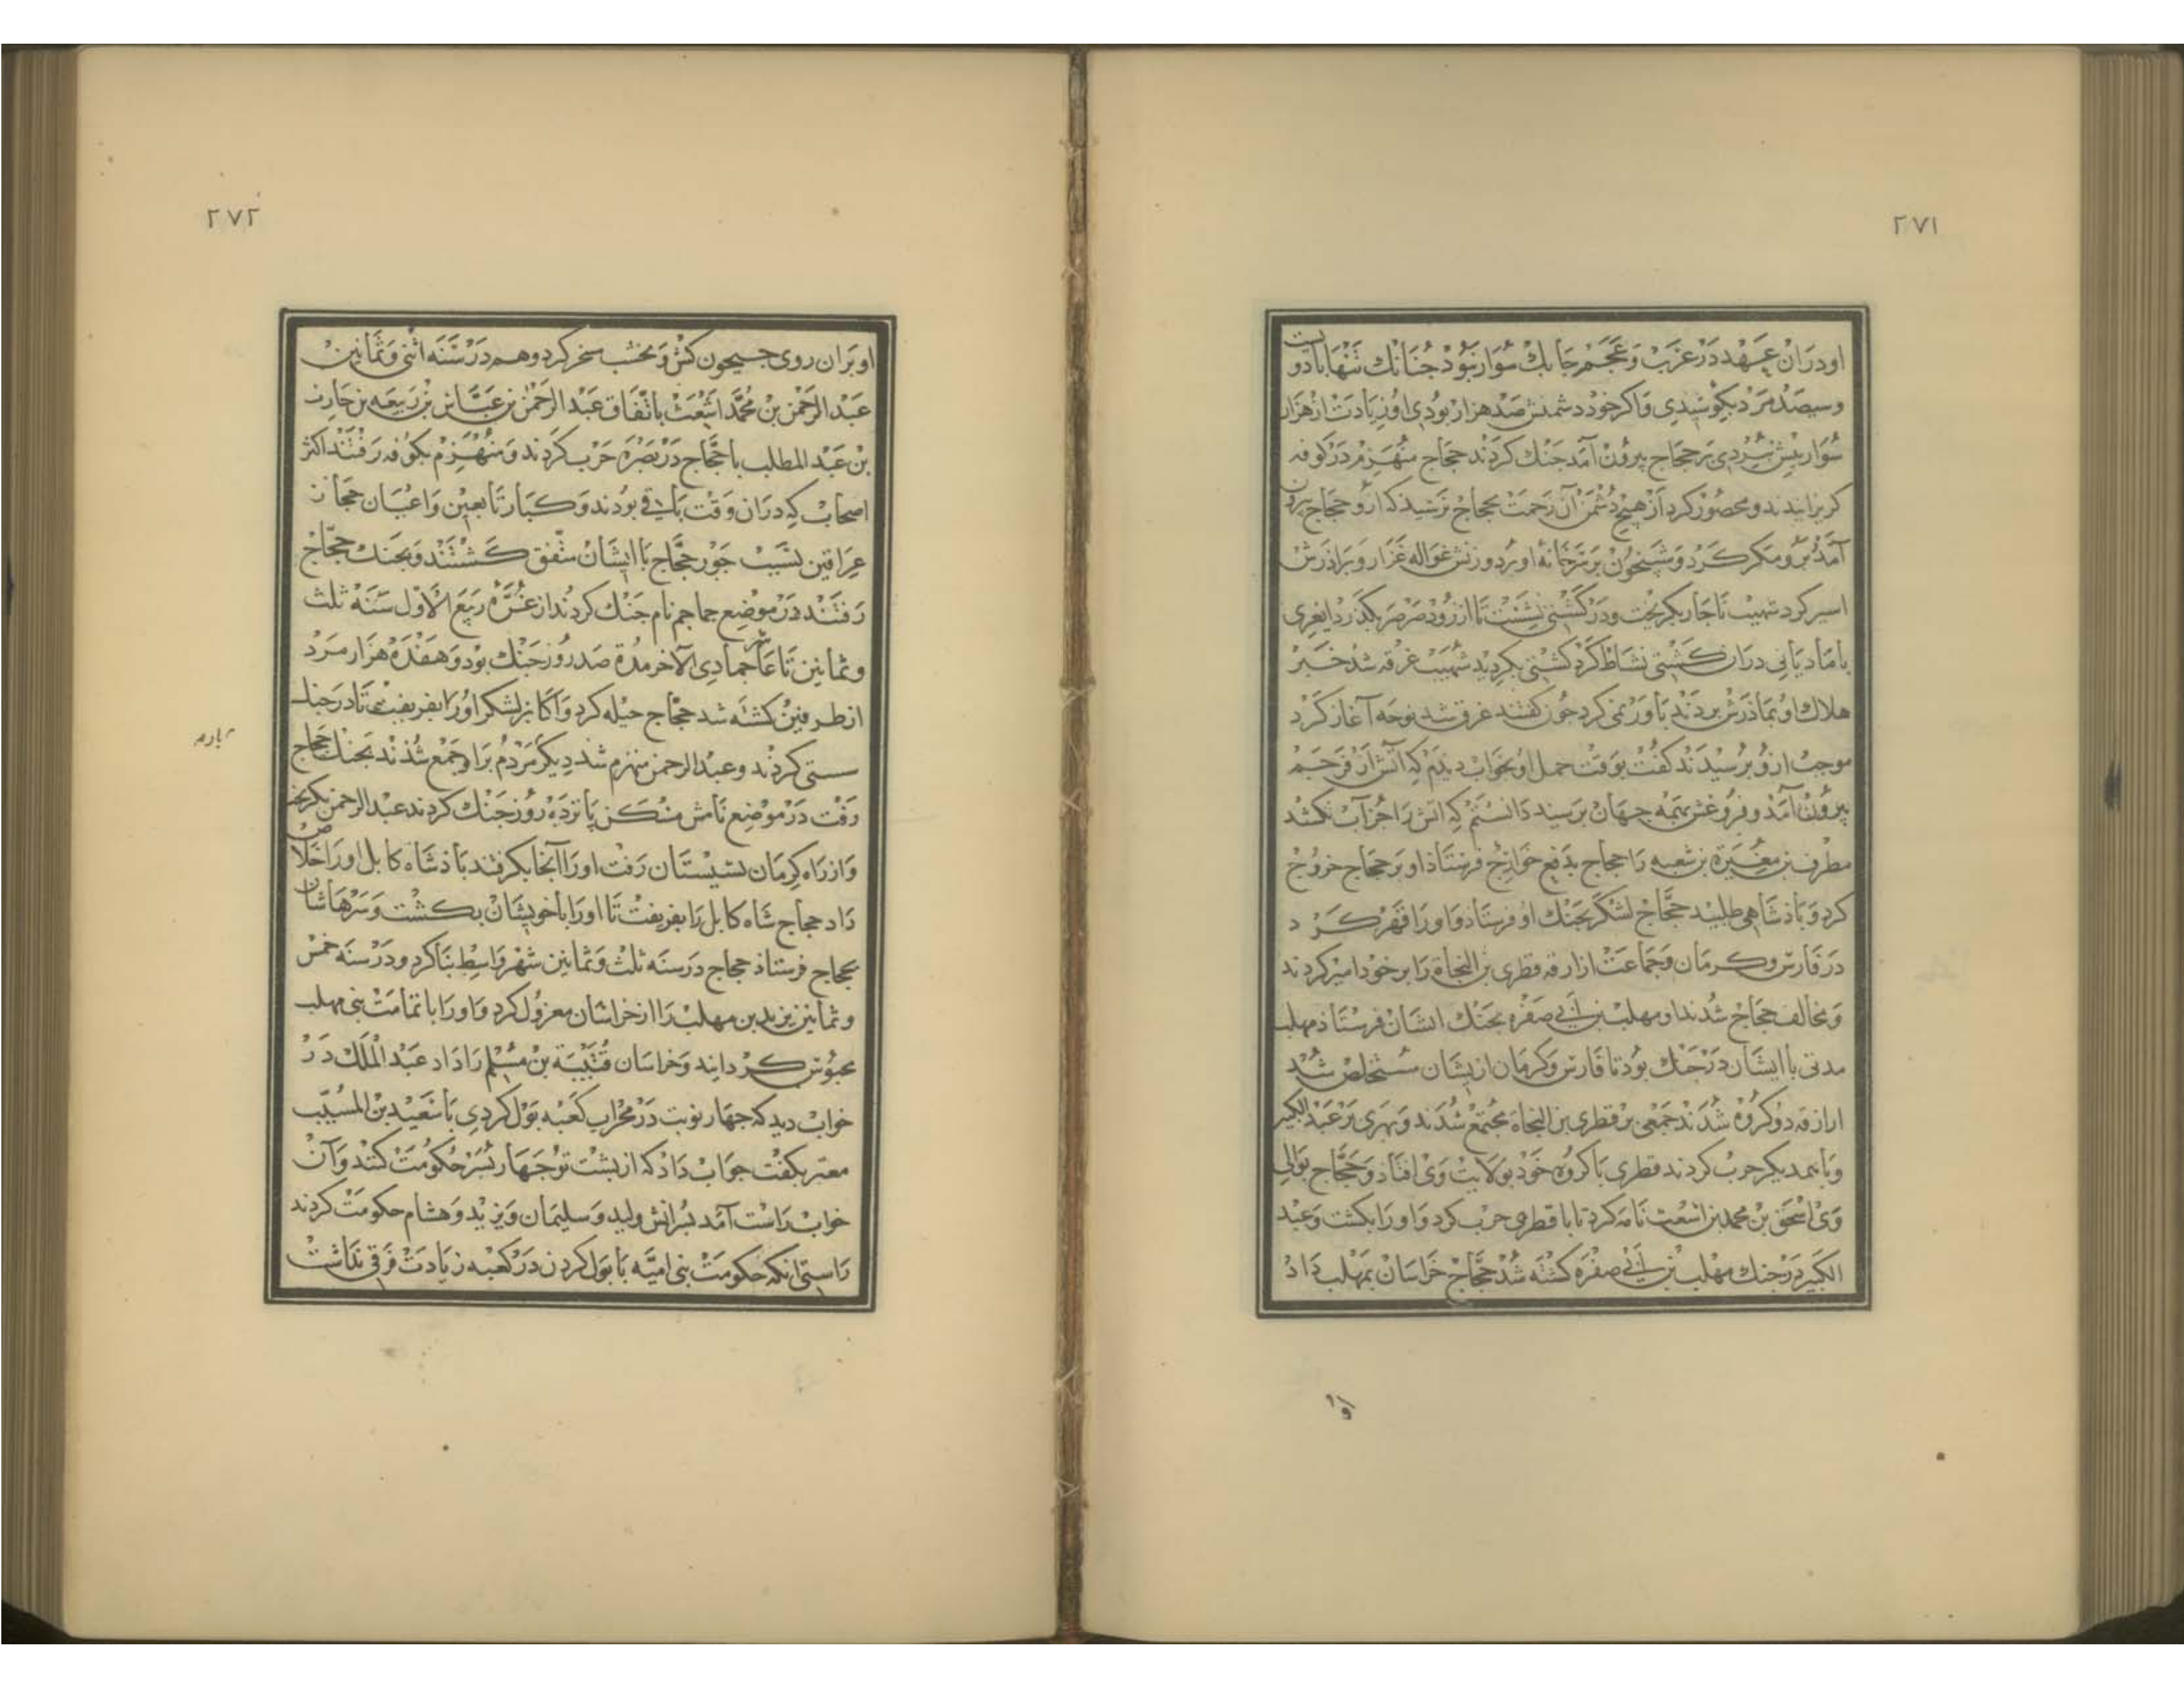 ۲۷۱
او دران عهد در عرب و عجم جابك سوار نبود جنانك تنها با دو
و سیصد مرد بکوشیدی و اکر خود دشمنش صد هزار بودی او زیادت از هزار
سوار بیش نبردی بر حجاج بیرون آمد جنك کردند حجاج منهزم در کوفه
کریزانیدند و محصور کرد از هیچ دشمن آن زحمت بحجاج نرسید که ازو حجاج بیرون
آمد برو مکر کرد و شبیخون بر سر خانه او برد و زنش غواله غزار و برادرش
اسیر کرد شبیب ناجار بکریخت و در کشتی نشست تا از رود صرصر بکذرد ایغری
با مادیانی دران کشتی نشاط کرد کشتی بکردید شبیب غرقه شد خبر
هلاك او بمادرش بردند باور نمی کرد جون کفتند غرق شد نوحه آغاز کرد
موجب ازو برسیدند کفت بوقت حمل او بخواب دیدم که آتش از فرجم
بیرون آمد و فروغش بهمه جهان برسید دانستم که اتش را جز آب نکشد
مطرف بن مغیرة بن شعبه را حجاج بدفع خوارج فرستاد او بر حجاج خروج
کرد و باذشاهی طلبید حجاج لشکر بجنك او فرستاد و او را قهر کرد
در فارس و کرمان و جماعت ازارقه قطری بن الفجاة را بر خود امیر کردند
و مخالف حجاج شدند او مهلب بن ابی صفره بجنك ایشان فرستاذ مهلب
مدتی با ایشان در جنك بود تا فارس و کرمان از یشان مستخلص شد
ازارقه دو کروه شدند جمعی بر قطری بن الفجاه مجتمع شدند و بهری بر عبد الکبیر
و با همدیکر حرب کردند قطری با کروه خود بولایت ری افتاد و حجاج بوالی
ری اسحق بن محمد بن اشعث نامه کرد تا با قطری حرب کرد و او را بکشت و عبد
الکبیر در جنك مهلب بن ابی صفره کشته شد حجاج خراسان بمهلب داد
او
۲۷۲
او بران روی جیحون کش و نخشب سخر کرد و هم در سنه اثنی و ثمانین
عبد الرحمن بن محمد اشعث باتفاق عبد الرحمن بن عباس بن ربیعه بن حارث
بن عبد المطلب با حجاج در بصره حرب کردند و منهزم بکوفه رفتند اکثر
اصحاب که دران وقت باقی بودند و کبار تابعین و اعیان حجاز
عراقین بسبب جور حجاج با ایشان متفق کشتند و بجنك حجاج
رفتند در موضع جماجم نام جنك کردند از غره ربیع الاول سنه ثلث
و ثمانین تا عاشر جمادی الآخر مدة صد روز جنك بود و هفده هزار مرد
از طرفین کشته شد حجاج حیله کرد و اکابر لشکر او را بفریفت تا در جنك
سستی کردند و عبد الرحمن منهزم شد دیکر مردم براو جمع شدند بجنك حجاج
رفت در موضع نامش مسکن پانزده روز جنك کردند عبد الرحمن بکریخت
و از راه کرمان بسیستان رفت او را آنجا بکرفتند باذشاه کابل او را خلاص
داد حجاج شاه کابل را بفریفت تا او را با خویشان بکشت و سرهاشان
بحجاج فرستاد حجاج در سنه ثلث و ثمانین شهر واسط بنا کرد و در سنه خمس
و ثمانین یزید بن مهلب را از خراسان معزول کرد و او را با تمامت بنی مهلب
محبوس کردانید و خراسان قتیبة بن مسلم را داد عبد الملك در
خواب دید که جهار نوبت در محراب کعبه بول کردی با سعید بن المسیب
معبر بکفت جواب داد که از پشت تو جهار پسر حکومت کنند و آن
خواب راست آمد پسرانش ولید و سلیمان و یزید و هشام حکومت کردند
راستی انکه حکومت بنی امیه با بول کردن در کعبه زیادت فرقی نداشت